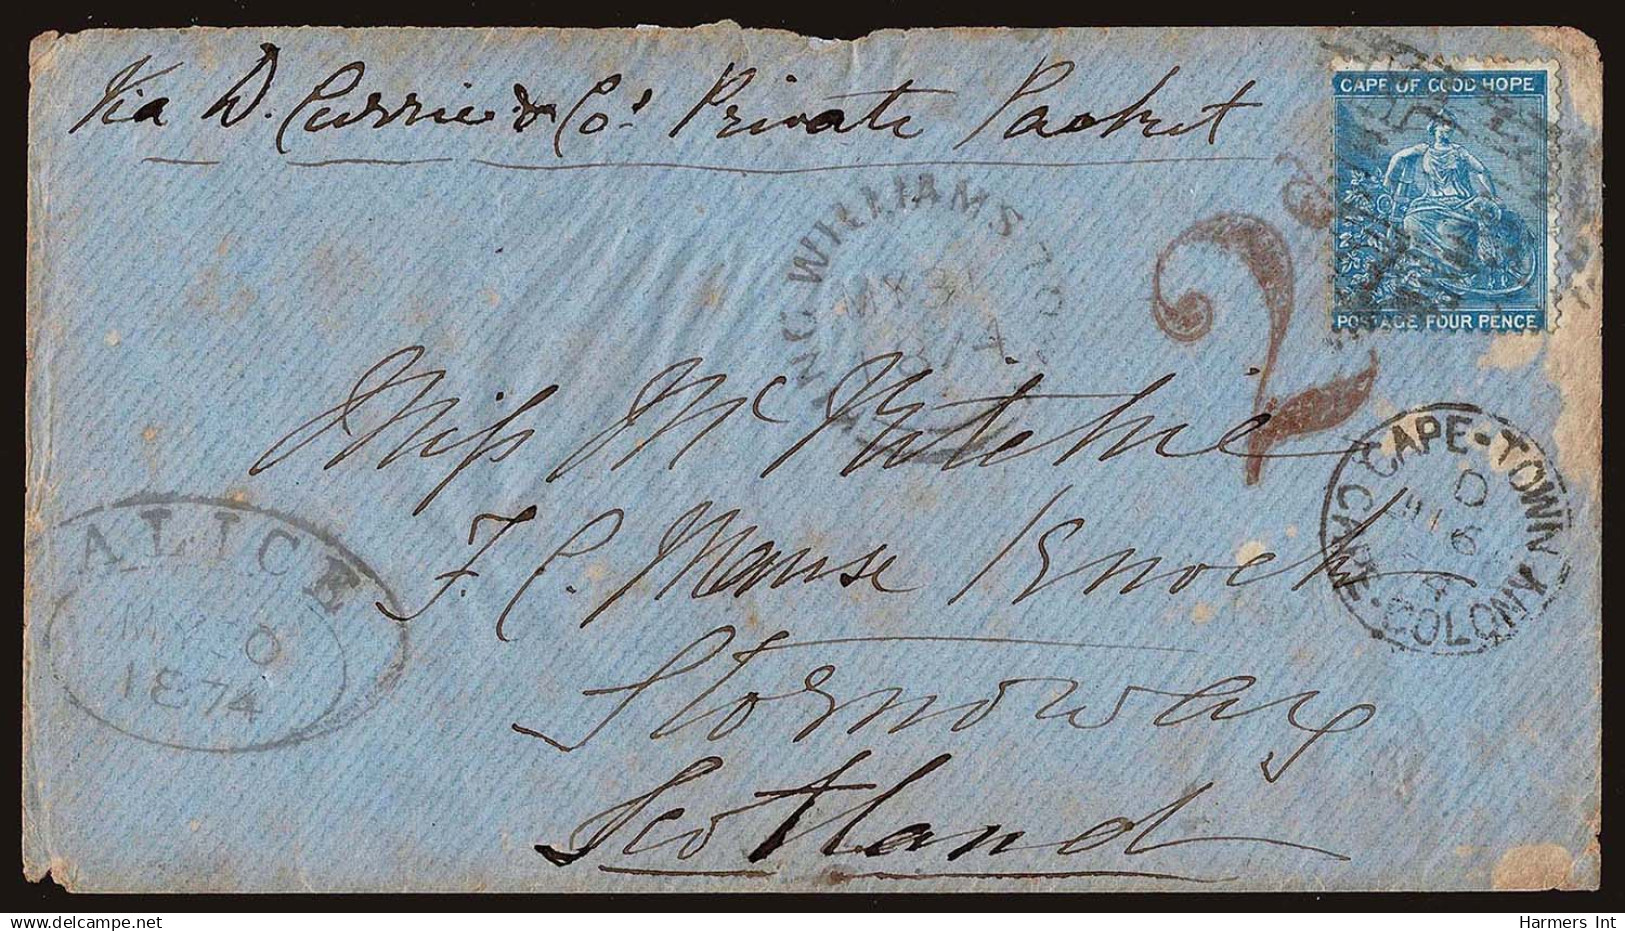 Via D. Currie & Co's Private Packet
CAPE OF GOOD HOPE
POSTAGE FOUR PENCE
KING WILLIAMS TOWN
MY 31
1874
2d
Miss McRitchie
F. C. Manse Knock
Stornoway
Scotland
ALICE
MY 30
1874
CAPE-TOWN
D
6
CAPE-COLONY
Harmers Int